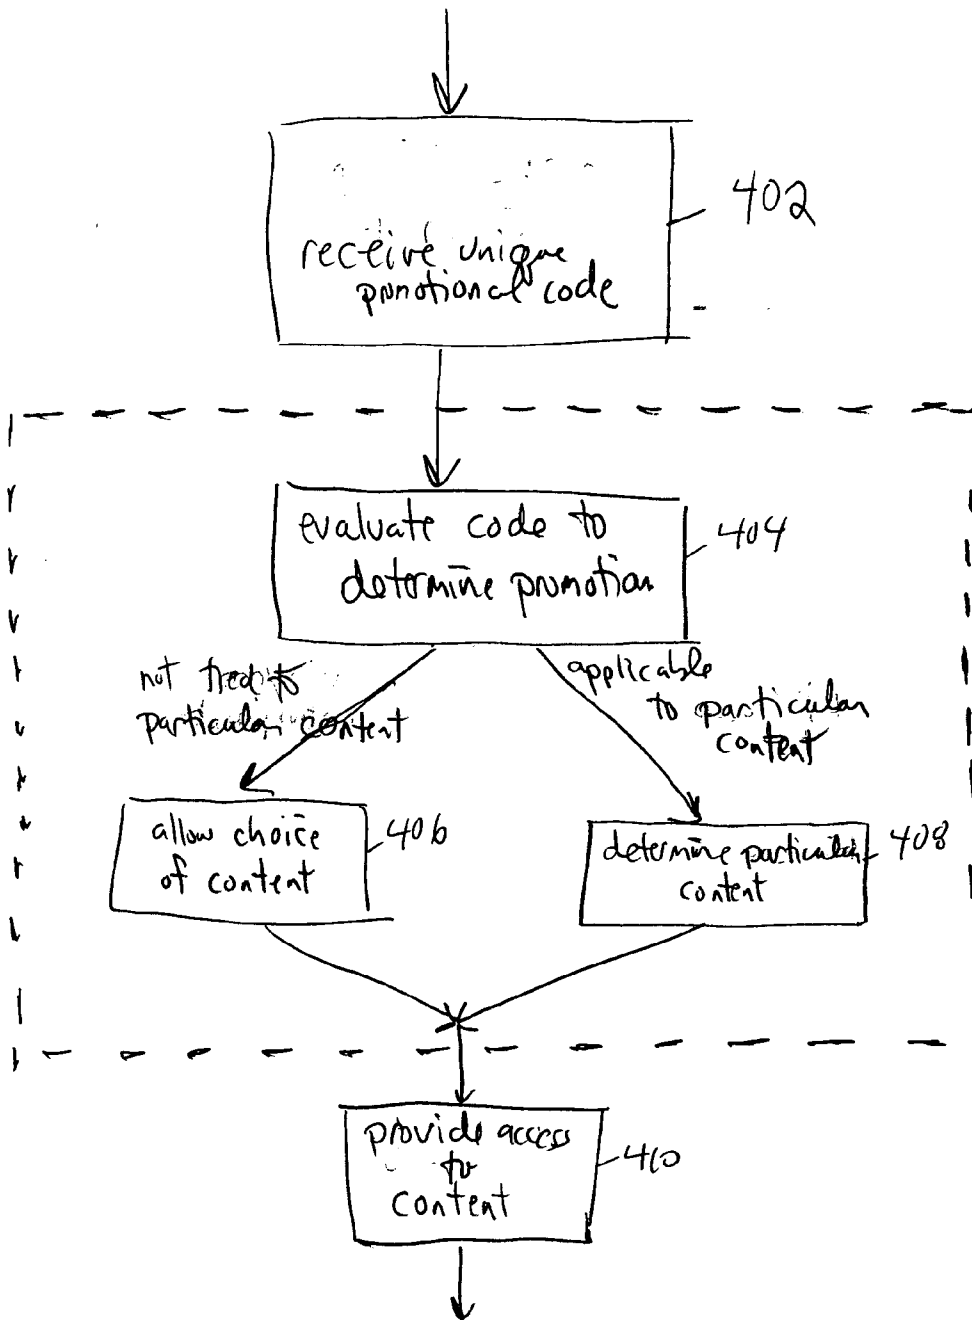 receive unique
promotional code
402
evaluate code to
determine promotion
404
not tied to
particular content
applicable
to particular
content
allow choice
of content
406
determine particular
content
408
provide access
to
content
410